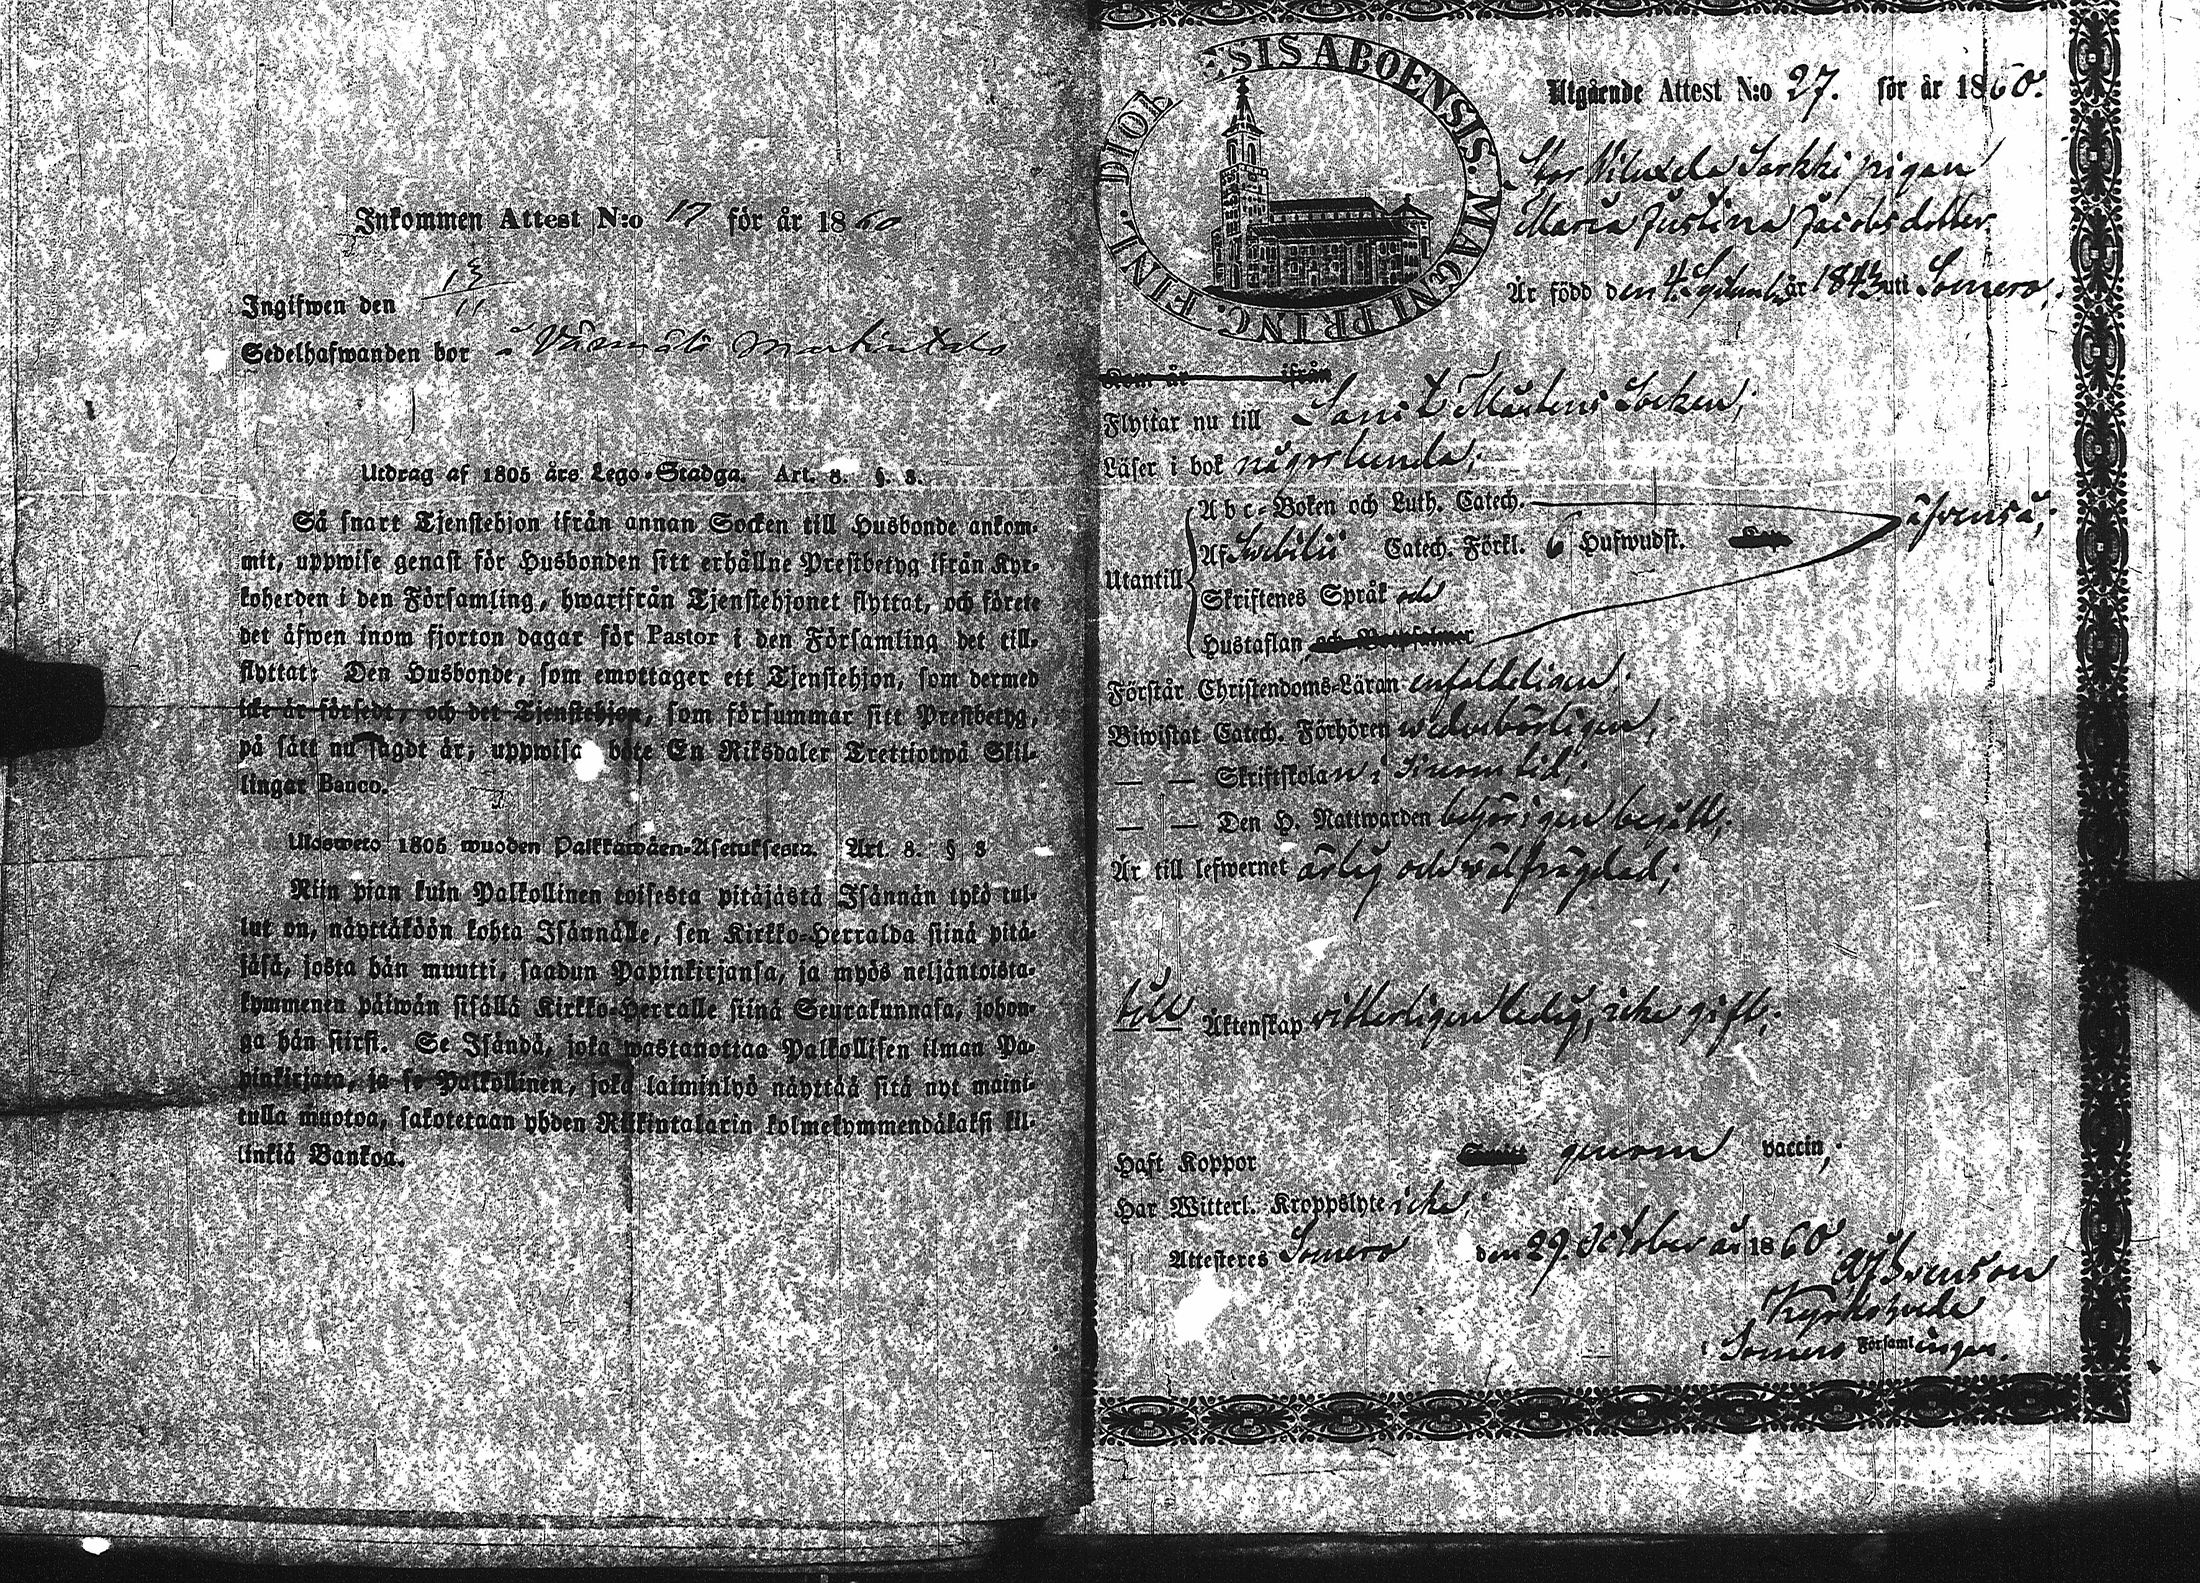 Inkommen Attest N:o 17 för år 1860
Ingifwen den 13/11
Sedelhafwanden bor å Värmälä Martintalo
Utdrag af 1805 års Lego-Stadga. Art. 8. §. 8.
Så snart Tjenstehjon ifrån annan Socken till Husbonde ankom-
mit, uppwise genast för Husbonden sitt erhållne Prestbetyg ifrån Kyr-
koherden i den Församling, hwarifrån Tjenstehjonet flyttat, och förete
det äfwen inom fjorton dagar för Pastor i den Församling det till-
flyttat: Den Husbonde, som emottager ett Tjenstehjon, som dermed
icke är försedt, och det Tjenstehjon, som försummar sitt Prestbetyg,
på sätt nu sagdt är, uppwisa böte En Riksdaler Trettiotwå Skil-
lingar Banco.
Ulosweto 1805 wuoden Palkkawäen-Asetuksesta. Art. 8. § 8
Niin pian kuin Palkollinen toisesta pitäjästä Isännän tykö tul-
lut on, näyttäköön kohta Isännälle, sen Kirkko-Herralda siinä pitä-
jäsä, josta hän muutti, saadun Papinkirjansa, ja myös neljäntoista-
kymmenen päiwän sisällä Kirkko-Herralle siinä Seurakunnasa, johon-
ga hän siirsi. Se Isändä, joka wastanottaa Palkollisen ilman Pa-
pinkirjata, ja se Palkollinen, joka laiminlyö näyttää sitä nyt maini-
tulla muotoa, sakotetaan yhden Riikintalarin kolmekymmendäkaksi kil-
linkiä Bankoa.
DIOE ESIS ABOENSIS. MAGNI PRINC. FINL.
Utgående Attest N:o 27. för år 1860.
Sarkki pigan
Maria Justina Jacobsdotter.
Är född den 4 Septemb. år 1843 uti Somero;
Kom år ifrån
Flyttar nu till Sanct Mårtens Socken;
Läser i bok någorlunda;
Utantill
Abc-Boken och Luth. Catech.
Af Svebilii Catech. Förkl. 6 Hufwudst.
Skriftenes Språk och
Hustaflan
äfvenså;
Förstår Christendoms-Läran enfaldeligen;
Biwistat Catech. Förhören wederbörligen;
— — Skriftskolan i sinom tid;
— — Den H. Nattwarden behörigen begått;
Är till lefwernet ärlig och välfrägdad;
till Äktenskap vitterligen ledig, icke gift;
Haft Koppor genom vaccin;
Har Witterl. Kroppslyte icke;
Attesteres Somero den 29 October år 1860.
Svenson
Kyrkoherde
i Somero Församlingen.